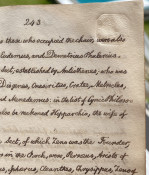 243
those who occupied the chair, were also
Calidemus, and Demetrius Phalerius.
Sect, established by Antisthenes, who was
Diogenes, Onesicritus, Crates, Metrocles,
and Menedemus: in the list of Cynic Philoso-
also be reckoned Hipparchia, the wife of
Sect, of which Zeno was the Founder,
in the Porch, were, Perseus, Aristo of
Sphœrus, Cleanthes, Chrysippus, Zeno of